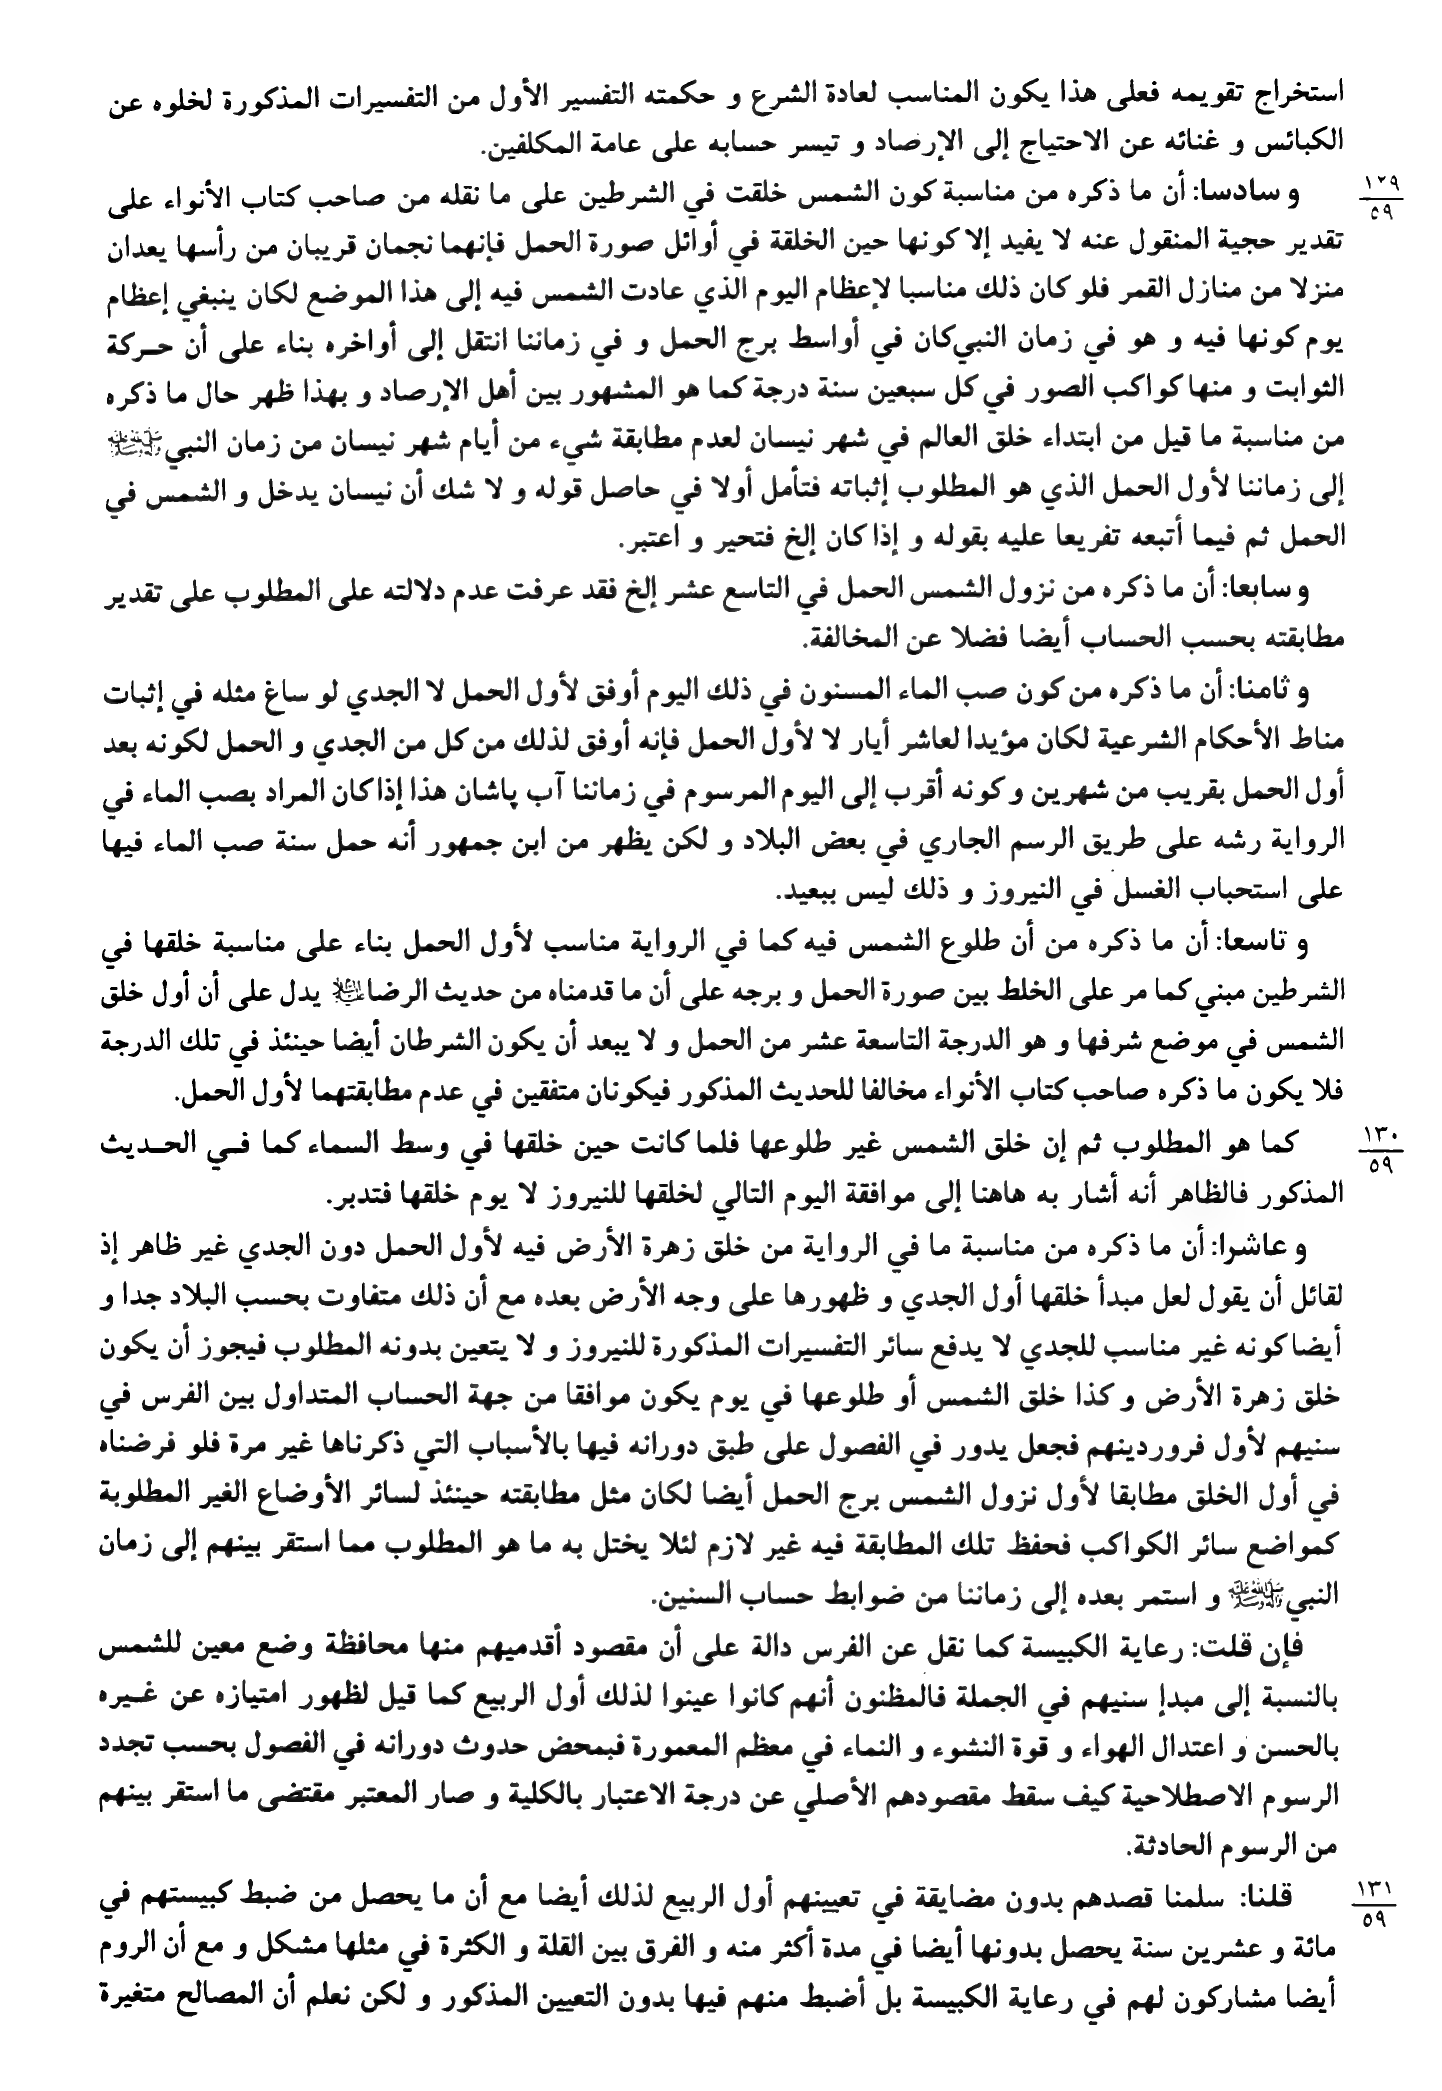 استخراج تقويمه فعلى هذا يكون المناسب لعادة الشرع و حكمته التفسير الأول من التفسيرات المذكورة لخلوه عن
الكبائس و غنائه عن الاحتياج إلى الإرصاد و تيسر حسابه على عامة المكلفين.
١٢٩
٥٩
و سادسا: أن ما ذكره من مناسبة كون الشمس خلقت في الشرطين على ما نقله من صاحب كتاب الأنواء على
تقدير حجية المنقول عنه لا يفيد إلا كونها حين الخلقة في أوائل صورة الحمل فإنهما نجمان قريبان من رأسها يعدان
منزلا من منازل القمر فلو كان ذلك مناسبا لإعظام اليوم الذي عادت الشمس فيه إلى هذا الموضع لكان ينبغي إعظام
يوم كونها فيه و هو في زمان النبي كان في أواسط برج الحمل و في زماننا انتقل إلى أواخره بناء على أن حركة
الثوابت و منها كواكب الصور في كل سبعين سنة درجة كما هو المشهور بين أهل الإرصاد و بهذا ظهر حال ما ذكره
من مناسبة ما قيل من ابتداء خلق العالم في شهر نيسان لعدم مطابقة شيء من أيام شهر نيسان من زمان النبي ﷺ
إلى زماننا لأول الحمل الذي هو المطلوب إثباته فتأمل أولا في حاصل قوله و لا شك أن نيسان يدخل و الشمس في
الحمل ثم فيما أتبعه تفريعا عليه بقوله و إذا كان إلخ فتحير و اعتبر.
و سابعا: أن ما ذكره من نزول الشمس الحمل في التاسع عشر إلخ فقد عرفت عدم دلالته على المطلوب على تقدير
مطابقته بحسب الحساب أيضا فضلا عن المخالفة.
و ثامنا: أن ما ذكره من كون صب الماء المسنون في ذلك اليوم أوفق لأول الحمل لا الجدي لو ساغ مثله في إثبات
مناط الأحكام الشرعية لكان مؤيدا لعاشر أيار لا لأول الحمل فإنه أوفق لذلك من كل من الجدي و الحمل لكونه بعد
أول الحمل بقريب من شهرين و كونه أقرب إلى اليوم المرسوم في زماننا آب پاشان هذا إذا كان المراد بصب الماء في
الرواية رشه على طريق الرسم الجاري في بعض البلاد و لكن يظهر من ابن جمهور أنه حمل سنة صب الماء فيها
على استحباب الغسل في النيروز و ذلك ليس ببعيد.
و تاسعا: أن ما ذكره من أن طلوع الشمس فيه كما في الرواية مناسب لأول الحمل بناء على مناسبة خلقها في
الشرطين مبني كما مر على الخلط بين صورة الحمل و برجه على أن ما قدمناه من حديث الرضا يدل على أن أول خلق
الشمس في موضع شرفها و هو الدرجة التاسعة عشر من الحمل و لا يبعد أن يكون الشرطان أيضا حينئذ في تلك الدرجة
فلا يكون ما ذكره صاحب كتاب الأنواء مخالفا للحديث المذكور فيكونان متفقين في عدم مطابقتهما لأول الحمل.
١٣٠
٥٩
كما هو المطلوب ثم إن خلق الشمس غير طلوعها فلما كانت حين خلقها في وسط السماء كما في الحديث
المذكور فالظاهر أنه أشار به هاهنا إلى موافقة اليوم التالي لخلقها للنيروز لا يوم خلقها فتدبر.
و عاشرا: أن ما ذكره من مناسبة ما في الرواية من خلق زهرة الأرض فيه لأول الحمل دون الجدي غير ظاهر إذ
لقائل أن يقول لعل مبدأ خلقها أول الجدي و ظهورها على وجه الأرض بعده مع أن ذلك متفاوت بحسب البلاد جدا و
أيضا كونه غير مناسب للجدي لا يدفع سائر التفسيرات المذكورة للنيروز و لا يتعين بدونه المطلوب فيجوز أن يكون
خلق زهرة الأرض و كذا خلق الشمس أو طلوعها في يوم يكون موافقا من جهة الحساب المتداول بين الفرس في
سنيهم لأول فروردينهم فجعل يدور في الفصول على طبق دورانه فيها بالأسباب التي ذكرناها غير مرة فلو فرضناه
في أول الخلق مطابقا لأول نزول الشمس برج الحمل أيضا لكان مثل مطابقته حينئذ لسائر الأوضاع الغير المطلوبة
كمواضع سائر الكواكب فحفظ تلك المطابقة فيه غير لازم لئلا يختل به ما هو المطلوب مما استقر بينهم إلى زمان
النبي ﷺ و استمر بعده إلى زماننا من ضوابط حساب السنين.
فإن قلت: رعاية الكبيسة كما نقل عن الفرس دالة على أن مقصود أقدميهم منها محافظة وضع معين للشمس
بالنسبة إلى مبدإ سنيهم في الجملة فالمظنون أنهم كانوا عينوا لذلك أول الربيع كما قيل لظهور امتيازه عن غيره
بالحسن و اعتدال الهواء و قوة النشوء و النماء في معظم المعمورة فبمحض حدوث دورانه في الفصول بحسب تجدد
الرسوم الاصطلاحية كيف سقط مقصودهم الأصلي عن درجة الاعتبار بالكلية و صار المعتبر مقتضى ما استقر بينهم
من الرسوم الحادثة.
١٣١
٥٩
قلنا: سلمنا قصدهم بدون مضايقة في تعيينهم أول الربيع لذلك أيضا مع أن ما يحصل من ضبط كبيستهم في
مائة و عشرين سنة يحصل بدونها أيضا في مدة أكثر منه و الفرق بين القلة و الكثرة في مثلها مشكل و مع أن الروم
أيضا مشاركون لهم في رعاية الكبيسة بل أضبط منهم فيها بدون التعيين المذكور و لكن نعلم أن المصالح متغيرة